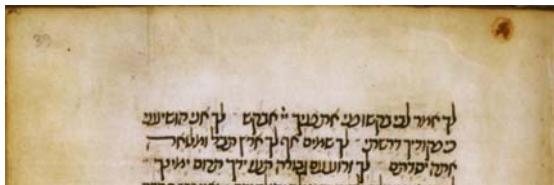 לך אמר לבי בקשו פני את פניך ייי אבקש לך אני הושיעני
כי פקודיך דרשתי לך שמים אף לך ארץ תבל ומלאה
אתה יסדתם לך זרוע עם גבורה תעז ידך תרום ימינך